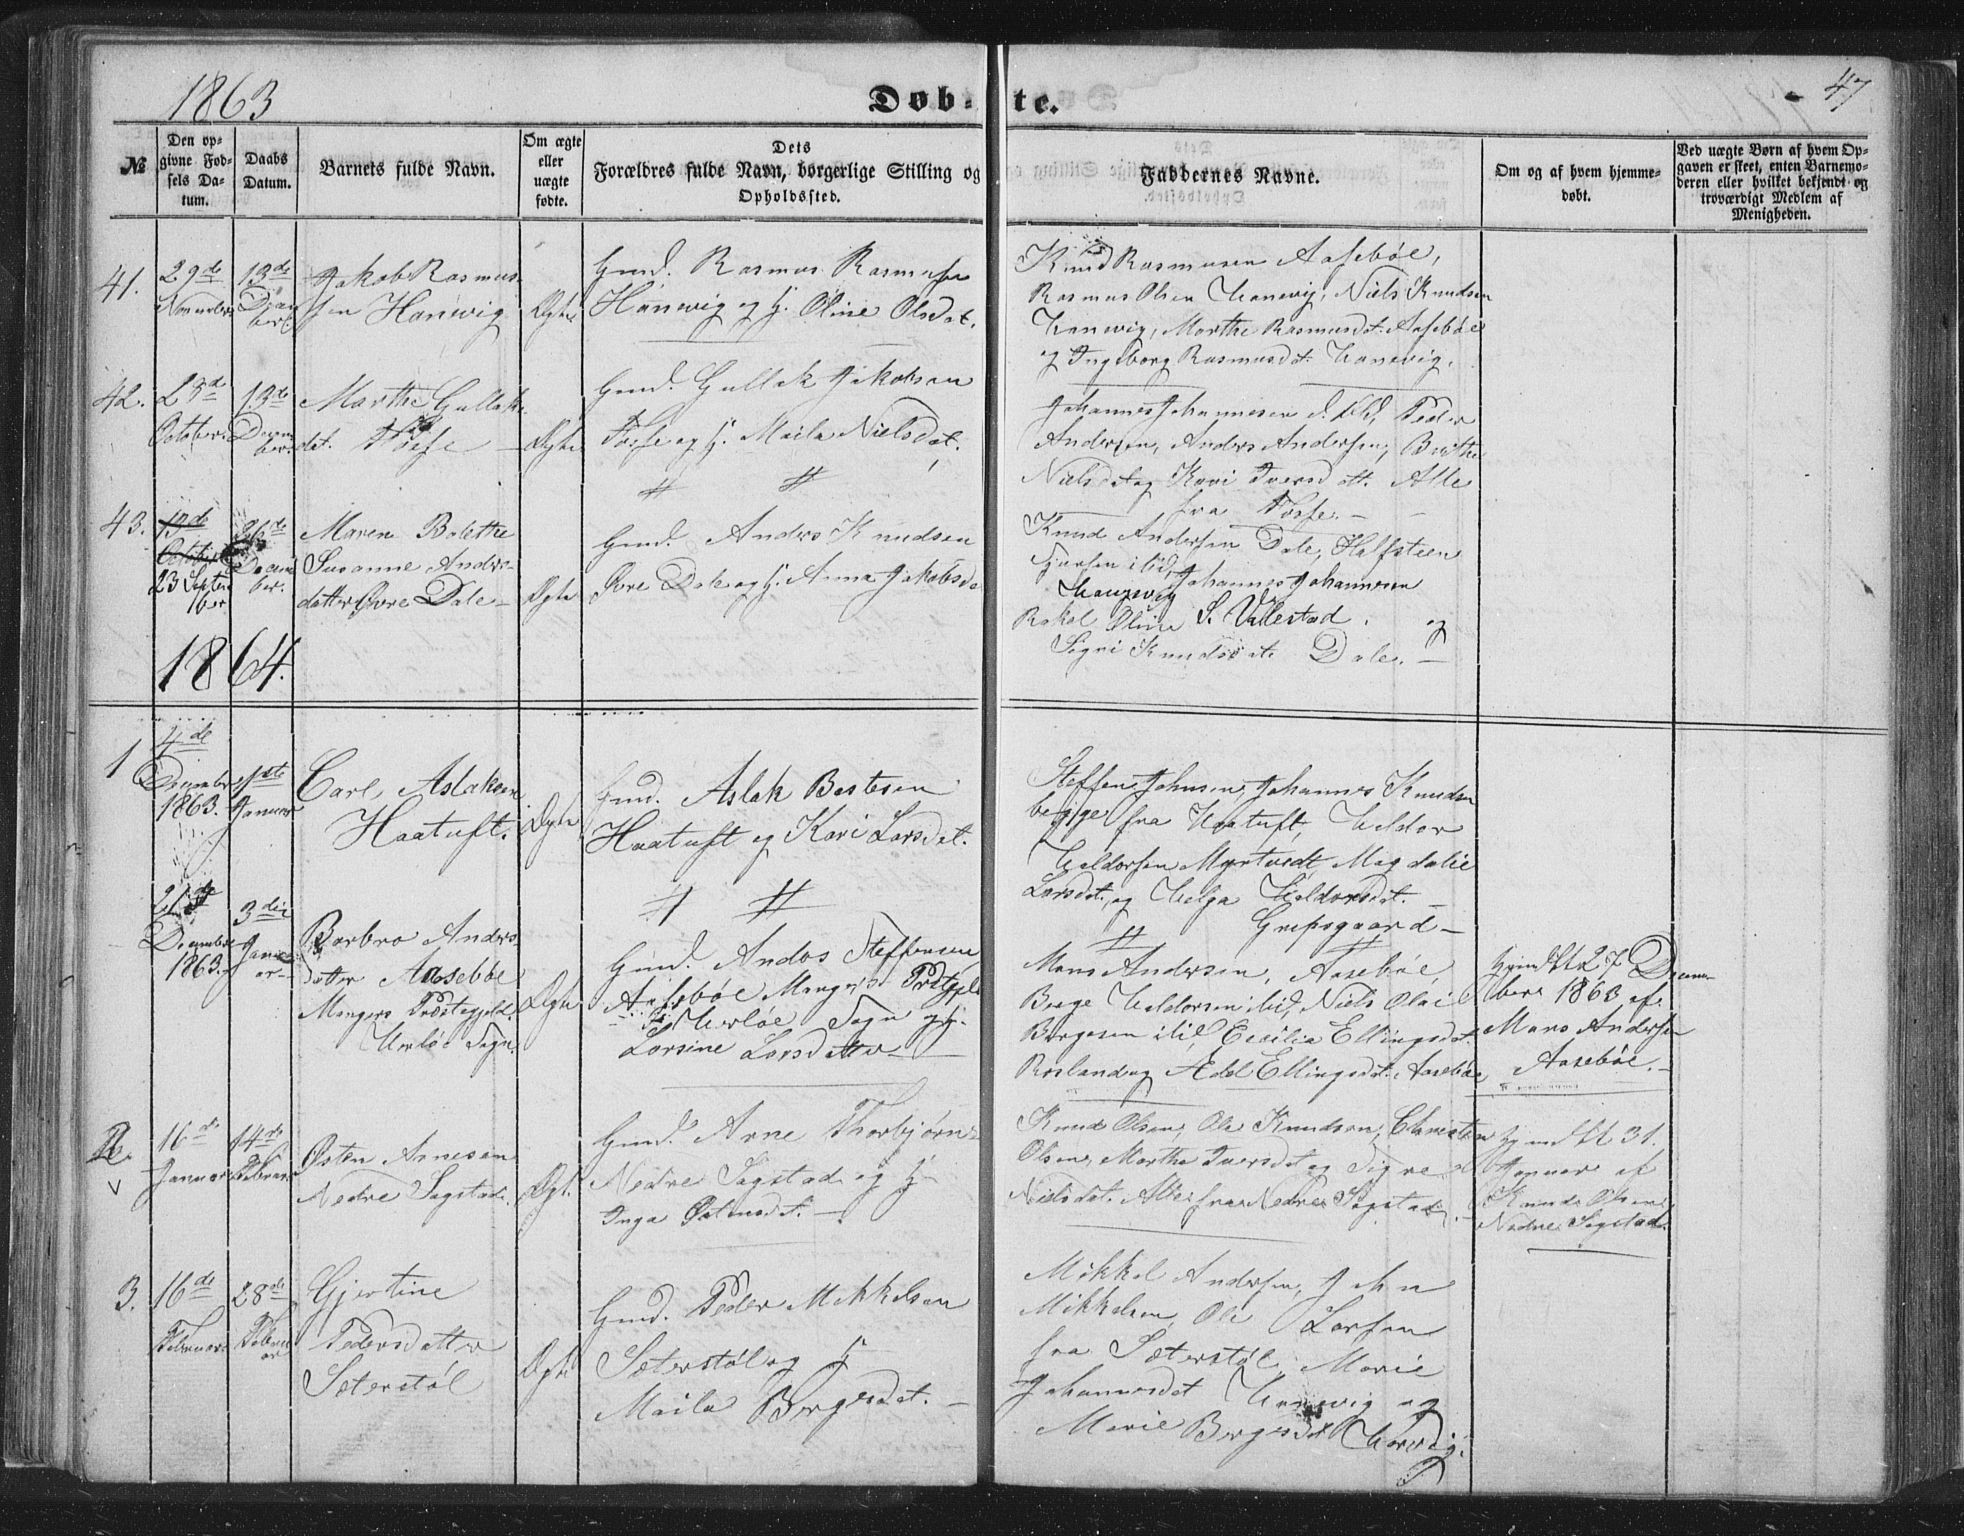 1863
Døbte.
47
№
Den opgivne Fødsels Datum.
Daabs Datum.
Barnets fulde Navn.
Om ægte eller uægte fødte.
Dets
Forældres fulde Navn, borgerlige Stilling og
Opholdssted.
Faddernes Navne.
Om og af hvem hjemmedøbt.
Ved uægte Børn af hvem Opgaven er skeet, enten Barnemoderen eller hvilket bekjendt og troværdigt Medlem af Menigheden.
41.
29de
November
13de
December
Jakob Rasmus-
sen Hanevig
Ægte
Gmd. Rasmus Rasmusen
Hanevig og H. Oline Olsdat.
Knud Rasmusen Aasebøe,
Rasmus Olsen Hanevig, Niels Knudsen
Hanevig, Marthe Rasmusdt. Aasebøe
og Ingeborg Rasmusdt. Hanevig.
42.
28d
October
13de
December
Marthe Gullaks
dat. Tosse
Ægte
Gmd. Gullak Jakobsen
Tosse og H. Maila Nielsdat.
Johannes Johannesen Peder
Andersen, Anders Andersen, Brithe
Nielsdat og Kari Iversdatt. Alle
fra Tosse.
43.
October
23 September
26de
December.
Maren Bolette
Susanne Anders-
datter Øvre Dale
Ægte
Gmd. Anders Knudsen
Øvre Dale og H. Anna Jakobsda
Knud Andersen Dale, Halfsteen
ibid, Johannes Johannesen
Hanevig
Rakel Oline S. Vallestad. og
Sigri Knudsdt. Dale.
1864.
1
4de
December
1863.
1ste
Januar
Carl Aslaksen
Haatuft.
Ægte
Gmd. Aslak Bertesen
Haatuft og Kari Larsdat.
Steffen Johnsen, Johannes Knudsen
begge fra Haatuft, Haldor
Haldorsen Myrtvedt, Magdalie
Larsdt. og Helga Haldorsdt.
Gripsgaard
21st
December
1863.
3die
Januar
Barbro Anders-
datter Aasebøe
Mangers Præstegjeld.
Herløe Sogn.
Ægte
Gmd. Anders Steffensen
Aasebøe Mangers Prstgjeld
Herløe Sogn og H.
Larsine Larsdatter
Mons Andersen, Aasebøe
Børge Haldorsen ibid, Niels Olai
Børgesen ibid, Cecilia Ellingsdt.
Rosland og Adel Ellingsdt. Aasebøe
hjmd. 27 Decem-
ber 1863 af
Mons Andersen
Aasebøe.
2.
16de
Januar
14de
Februar
Østen Arnesen
Nedre Sagstad.
Ægt.
Gmd. Arne Thorbjørn
Nedre Sagstad og H.
Inga Østensdt.
Knud Olsen, Ole Knudsen, Christen
Olsen, Marthe Iversdt og Sigre
Nielsdat. Alle fra Nedre Sagstad.
hjmd. 31.
Januar af
Knud Olsen
Nedre Sagstad.
3.
16de
Februar
28de
Februar
Gjertine
Pedersdatter
Sæterstøl
Ægte
Gmd. Peder Mikkelsen
Sæterstøl og H
Maila Børgesdat.
Mikkel Andersen, John
Mikkelsen, Ole Larsen
fra Sæterstøl, Marie
Johannesdt Hanevig og
Marie Børgesdt